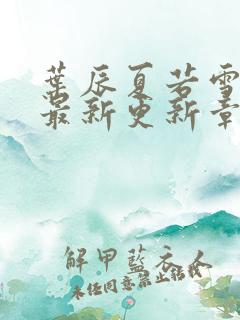 葉辰夏若雪
最新更新章
解甲藍衣人
未经同意禁止转载